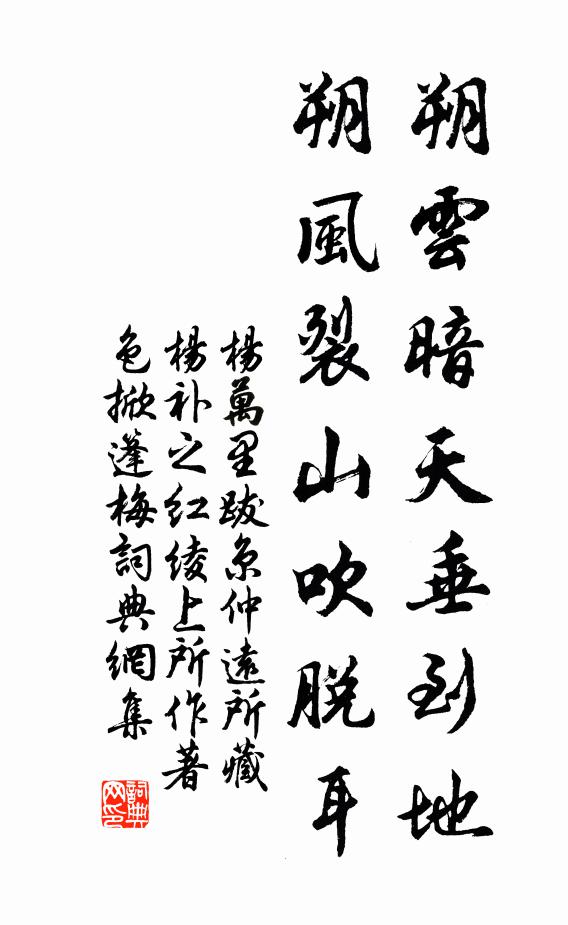 朔雲暗天垂到地
朔風裂山吹脱耳
楊萬里跋京仲遠所藏
楊补之红绫上所作著
色掀篷梅詞典網集
詞典网印